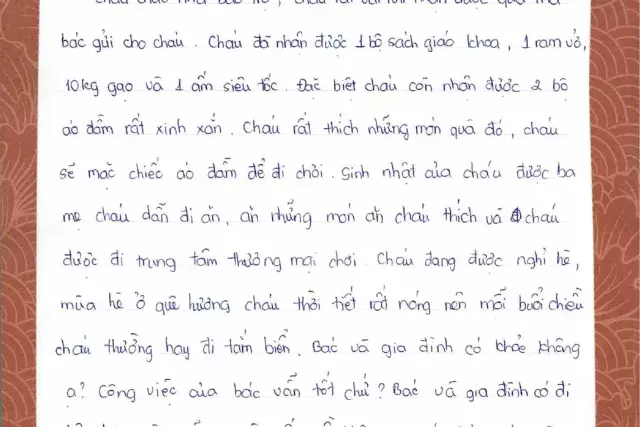 bác gửi cho cháu. Cháu đã nhận được 1 bộ sách giáo khoa, 1 ram vở,
10kg gạo và 1 ấm siêu tốc. Đặc biệt cháu còn nhận được 2 bộ
áo đầm rất xinh xắn. Cháu rất thích những món quà đó, cháu
sẽ mặc chiếc áo đầm để đi chơi. Sinh nhật của cháu được ba
mẹ cháu dẫn đi ăn, ăn những món ăn cháu thích và cháu
được đi trung tâm thương mại chơi. Cháu đang được nghỉ hè,
mùa hè ở quê hương cháu thời tiết rất nóng nên mỗi buổi chiều
cháu thường hay đi tắm biển. Bác và gia đình có khỏe không
ạ? Công việc của bác vẫn tốt chứ? Bác và gia đình có đi